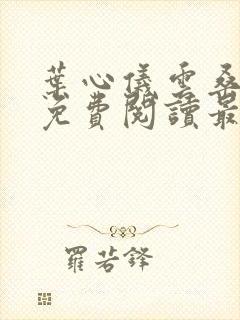 葉心儀雲桑
免費閱讀最
羅若鋒